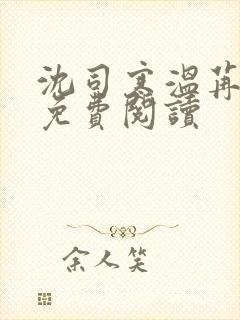 沈司寒溫苒
免費閱讀
余人笑